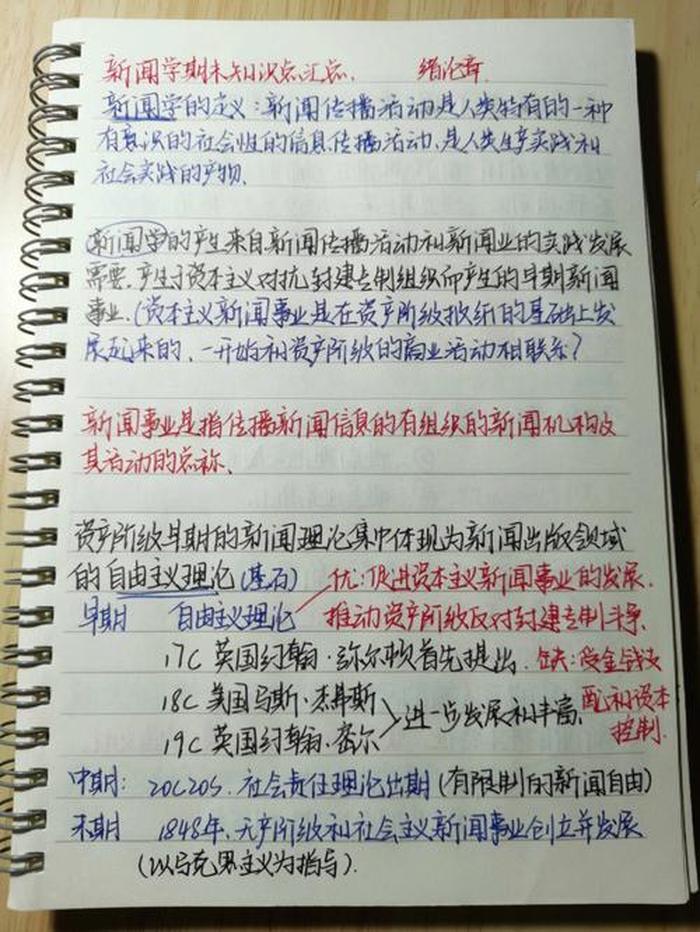 新闻学期末知识点汇总. 绪论章.
新闻学的定义:新闻传播活动是人类特有的一种
有意识的社会性的信息传播活动、是人类生产实践和
社会实践的产物.
新闻学的产生来自新闻传播活动和新闻业的实践发展
需要.产生于资本主义对抗封建专制组织而产生的早期新闻
事业.(资本主义新闻事业是在资产阶级报纸的基础上发
展起来的,一开始和资产阶级的商业活动相联系?
新闻事业是指传播新闻信息的有组织的新闻机构及
其活动的总称、
资产阶级早期的新闻理论集中体现为新闻出版领域
的自由主义理论(基石) 优:促进资本主义新闻事业的发展.
早期 自由主义理论 推动资产阶级反对封建专制斗争.
17C 英国约翰·弥尔顿首先提出. 缺:受金钱支
18C 美国马斯·杰弗斯 配和资本
进一步发展和丰富. 控制.
19C 英国约翰·密尔
中期: 20C20S.社会责任理论出期(有限制的新闻自由)
末期 1848年,无产阶级和社会主义新闻事业创立并发展
(以马克思主义为指导).